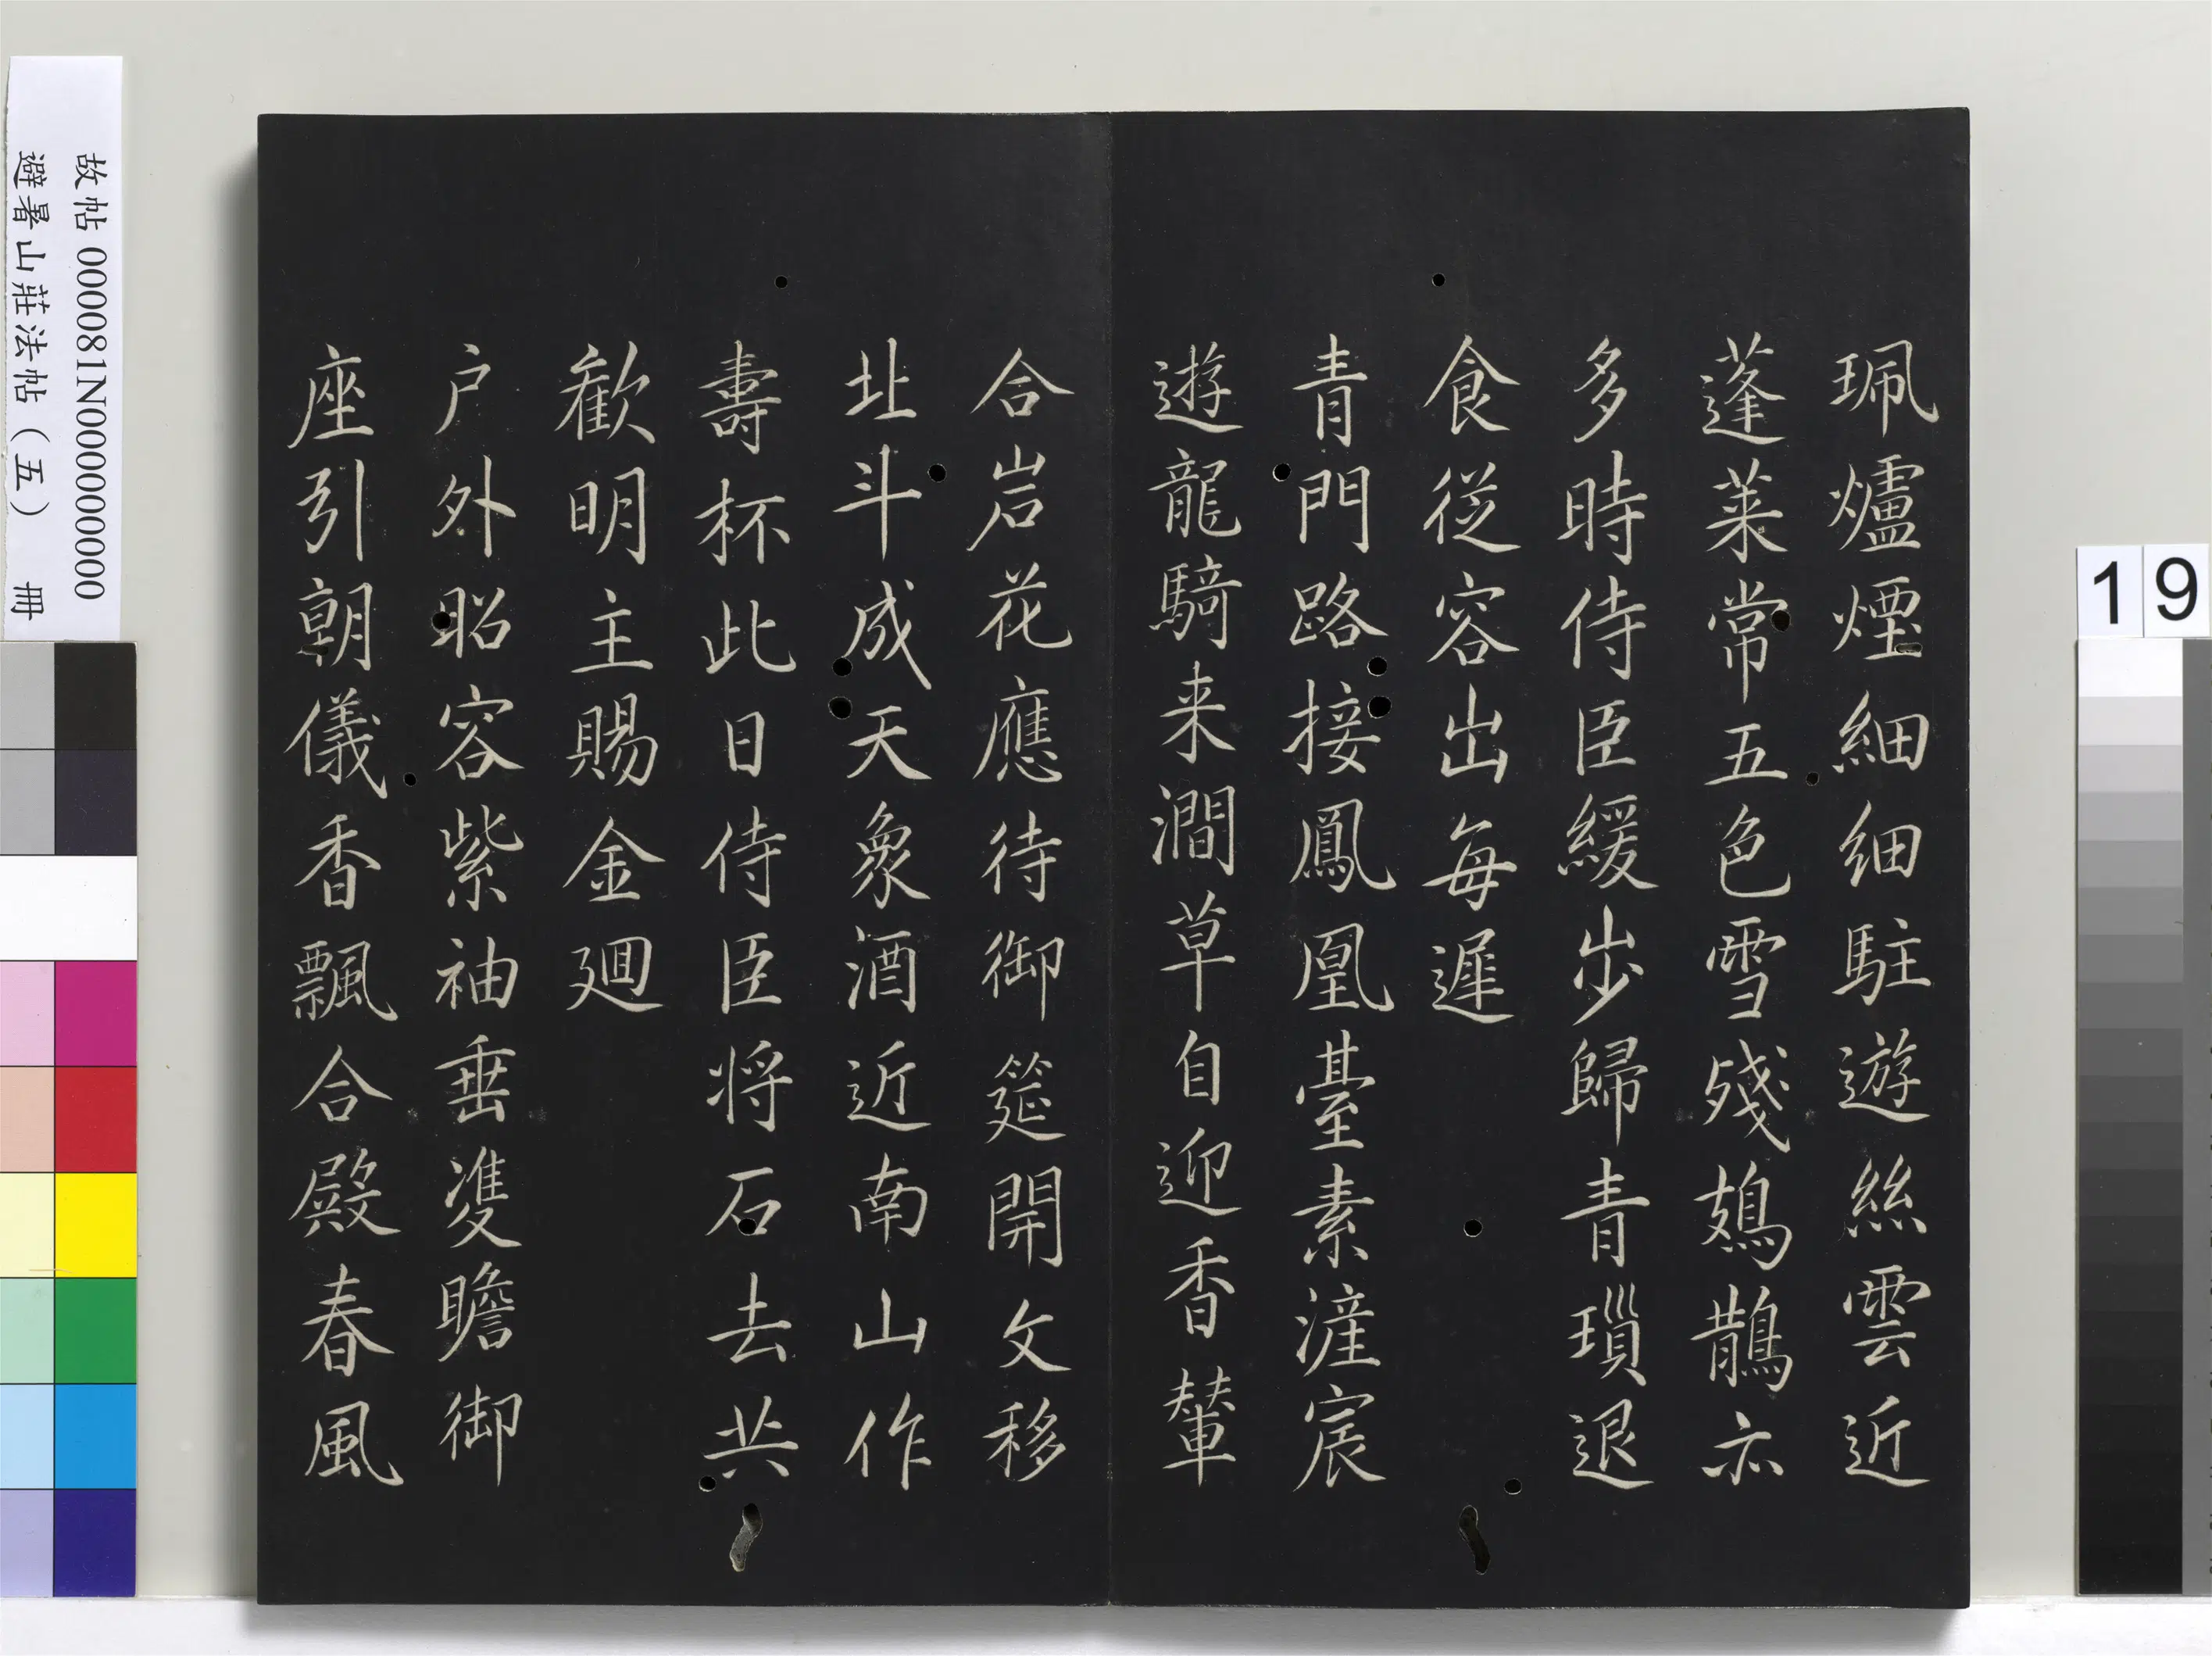 珮爐煙細細駐遊絲雲近
蓬萊常五色雪殘鳷鵲亦
多時侍臣緩步歸青瑣退
食從容出每遲
青門路接鳳凰臺素滻宸
遊龍騎来澗草自迎香輦
合岩花應待御筵開文移
北斗成天象酒近南山作
壽杯此日侍臣將石去共
歡明主賜金廻
户外昭容紫袖垂雙瞻御
座引朝儀香飄合殿春風
故帖 000081N000000000
避暑山莊法帖（五） 冊
19